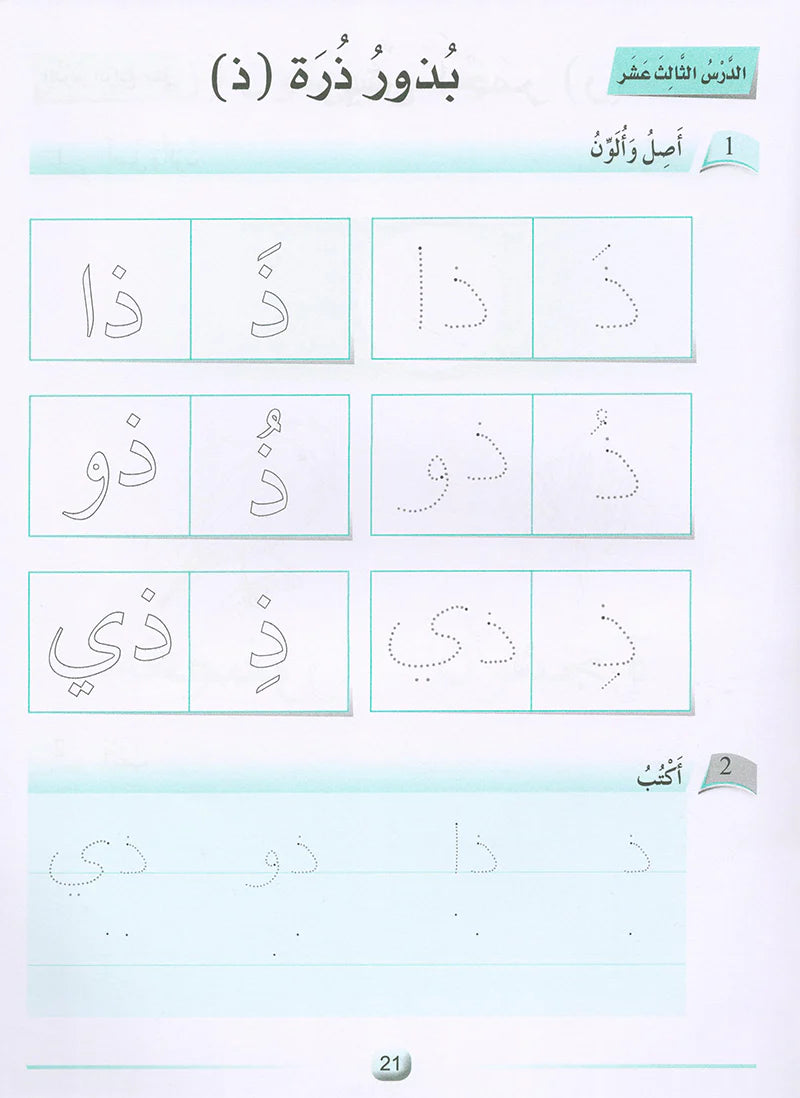 الدَّرْسُ الثَّالِثَ عَشَر
بُذورُ ذُرَة (ذ)
1 أَصِلُ وَأُلَوِّنُ
ذَ ذا ذَ ذا
ذُ ذو ذُ ذو
ذِ ذي ذِ ذي
2 أَكْتُبُ
ذ ذا ذو ذي
21